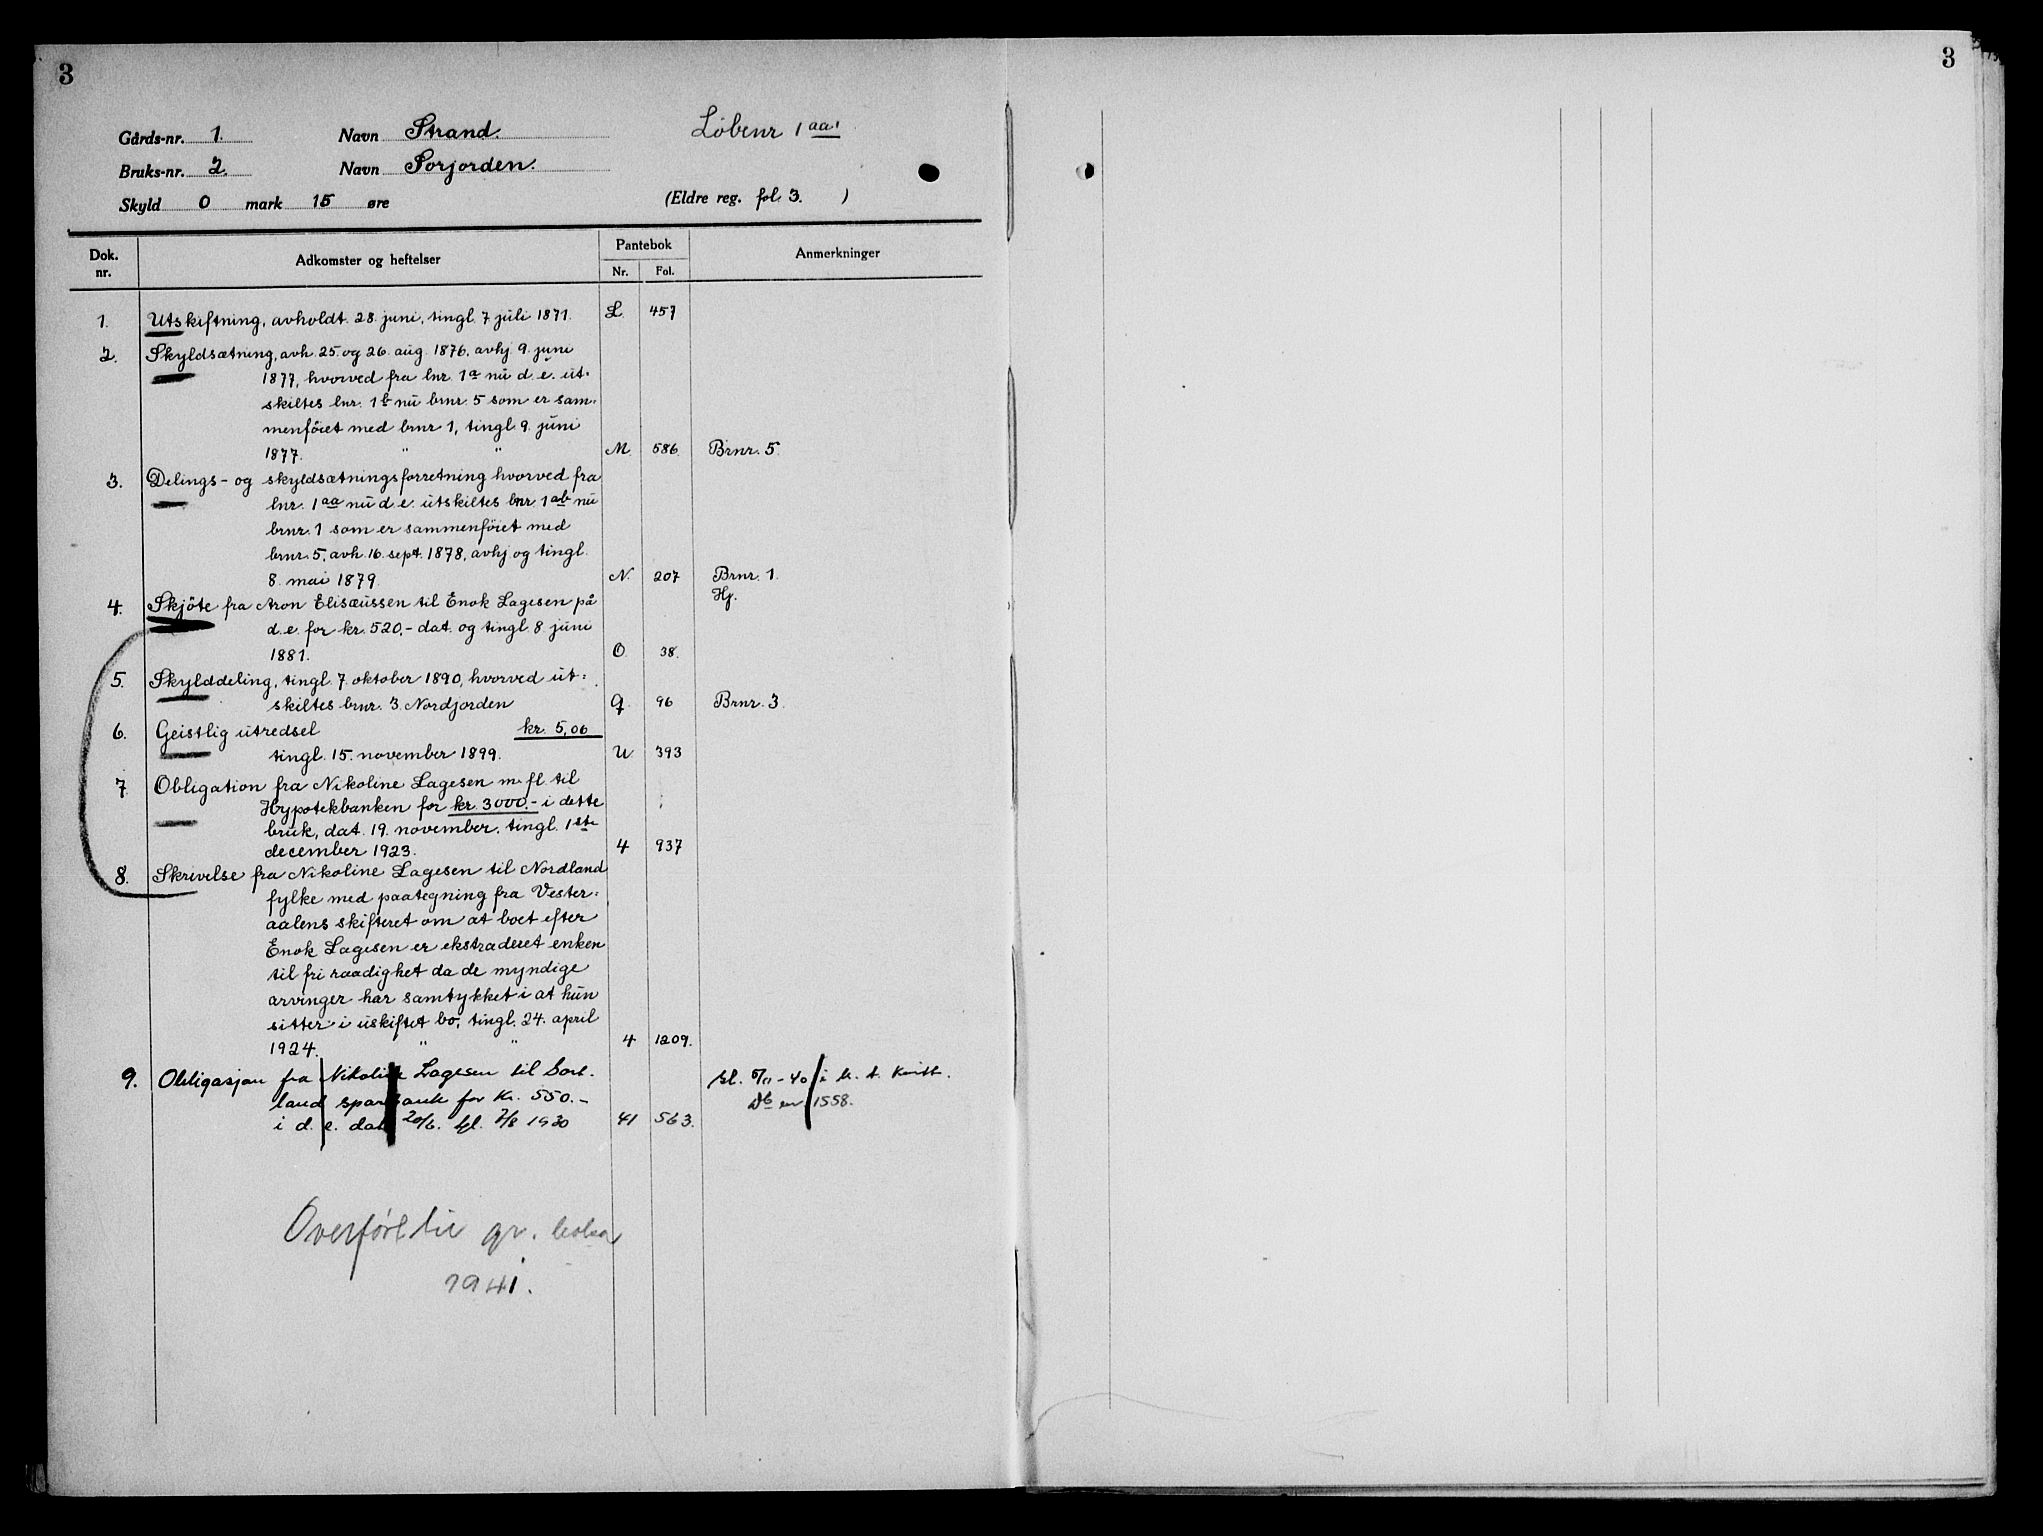 3
Gårds-nr. 1. Navn Strand. Löbenr 1 aa1
Bruks-nr. 2. Navn Sorjorden.
Skyld 0 mark 15 øre (Eldre reg. fol. 3. )
Dok. nr. Adkomster og heftelser Pantebok Nr. Fol. Anmerkninger
1. Utskiftning, avholdt 28. juni, tingl. 7 juli 1871. L 457
2. Skyldsætning, avh. 25. og 26. aug. 1876, avhj. 9. juni
1877, hvorved fra lnr. 1a nu d. e. ut-
skiltes lnr. 1b nu brnr. 5 som er sam-
menföiet med brnr 1, tingl. 9. juni
1877. " " M. 586. Brnr. 5.
3. Delings- og skyldsætningsforretning hvorved fra
lnr. 1aa nu d. e. utskiltes lnr. 1ab nu
brnr. 1 som er sammenföiet med
brnr. 5, avh. 16. sept. 1878, avhj og tingl.
8. mai 1879. N. 207 Brnr. 1.
4. Skjöte fra Aron Elisæussen til Enok Lagesen på Hj.
d. e. for kr. 520,- dat. og tingl. 8. juni
1881. O. 38.
5. Skylddeling, tingl. 7. oktober 1890, hvorved ut-
skiltes brnr. 3. Nordjorden Q. 96 Brnr. 3.
6. Geistlig utredsel kr. 5,06
tingl. 15. november 1899. U 393
7. Obligation fra Nikoline Lagesen m. fl. til
Hypotekbanken for kr. 3000.- i dette
bruk, dat. 19. november, tingl. 1ste
december 1923. 4 937
8. Skrivelse fra Nikoline Lagesen til Nordland
fylke med paategning fra Vester-
aalens skifteret om at boet efter
Enok Lagesen er ekstraderet enken
til fri raadighet da de myndige
arvinger har samtykket i at hun
sitter i uskiftet bo, tingl. 24. april
1924. " " 4 1209.
9. Obligasjon fra Nikoline Lagesen til Sort-
land sparebank for kr. 550.-
i d. e. dat 20/6. tgl. 7/8 1930 41 563.
1558.
Overført til gr. boka
1941.
3